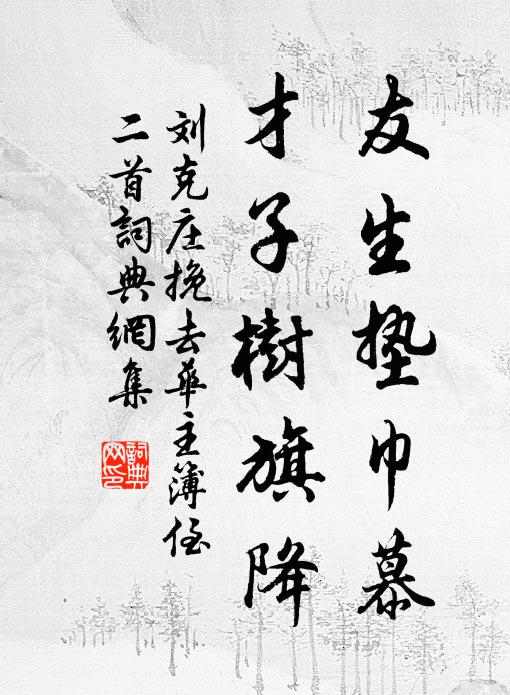 友生垫巾慕
才子樹旗降
刘克庄挽去華主簿侄
二首詞典網集
詞典网印